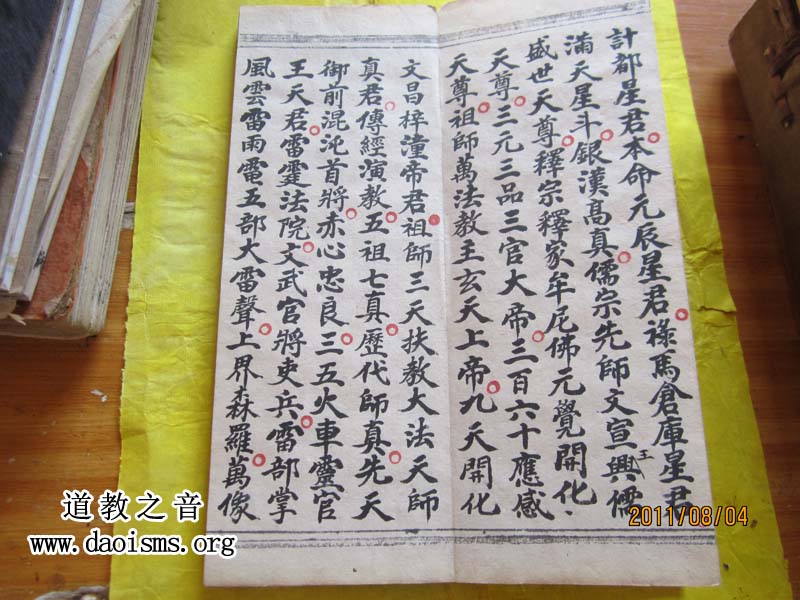 計都星君本命元辰星君祿馬倉庫星君
滿天星斗銀漢高真儒宗先師文宣王興儒
盛世天尊釋宗釋家牟尼佛元覺開化
天尊三元三品三官大帝三百六十應感
天尊祖師萬法教主玄天上帝九天開化
文昌梓潼帝君祖師三天扶教大法天師
真君傳經演教五祖七真歷代師真先天
御前混沌首將赤心忠良三五火車靈官
王天君雷霆法院文武官將吏兵雷部掌
風雲雷雨電五部大雷聲上界森羅萬像
道教之音
www.daoisms.org
2011/08/04